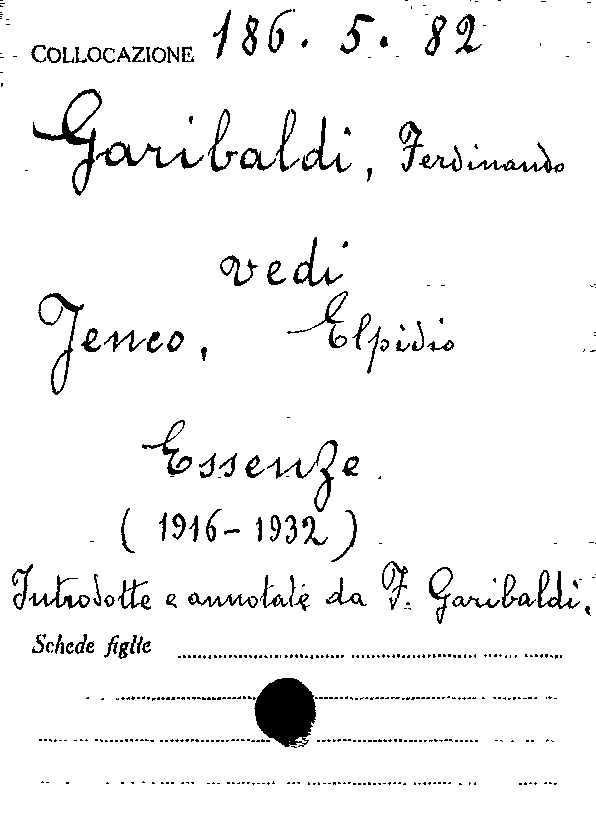 COLLOCAZIONE 186. 5. 82
Garibaldi, Ferdinando
vedi
Jenco, Elpidio
Essenze.
(1916-1932)
Introdotte e annotate da F. Garibaldi.
Schede figlie